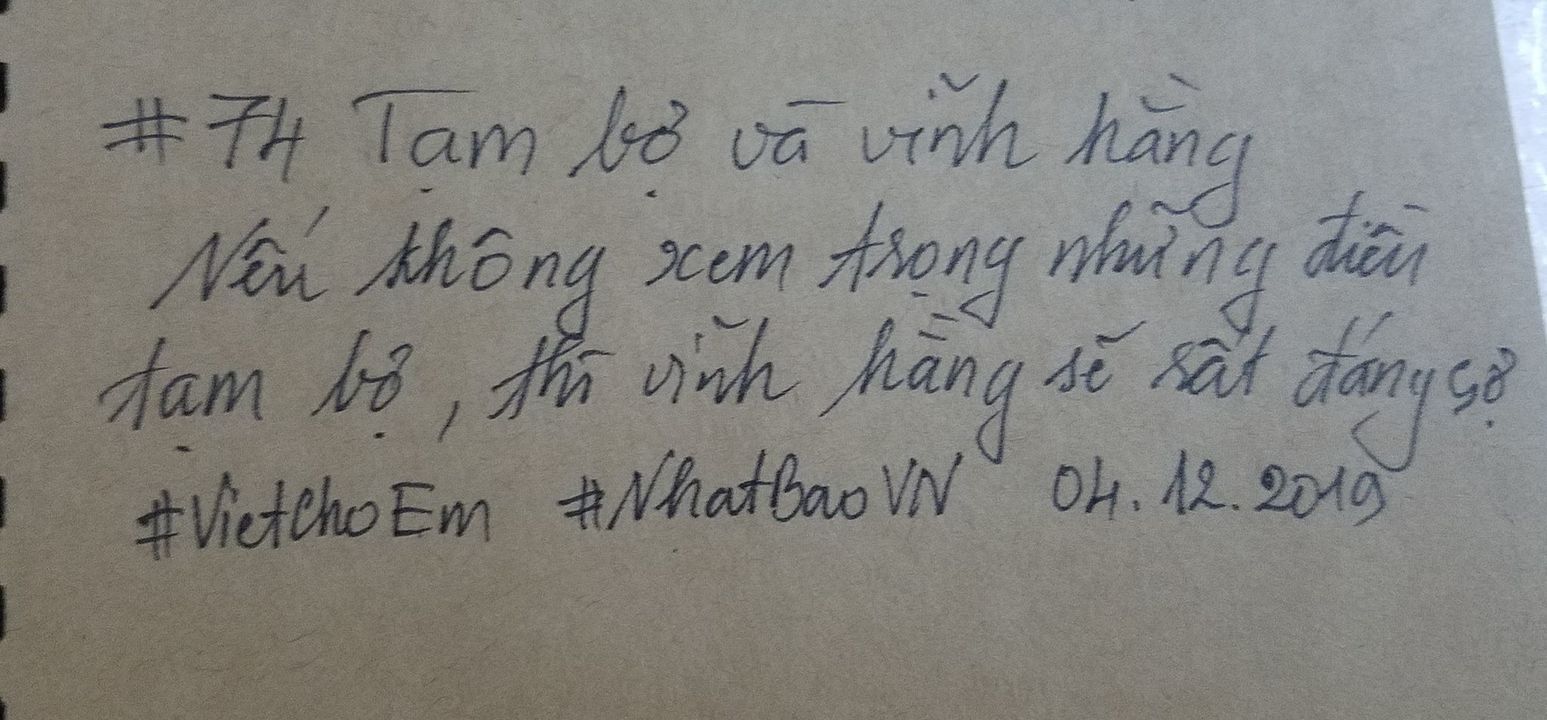 #74 Tạm bợ và vĩnh hằng
Nếu không xem trọng những điều
tạm bợ, thì vĩnh hằng sẽ rất đáng sợ
#VietChoEm #NhatBaoVN 04.12.2019